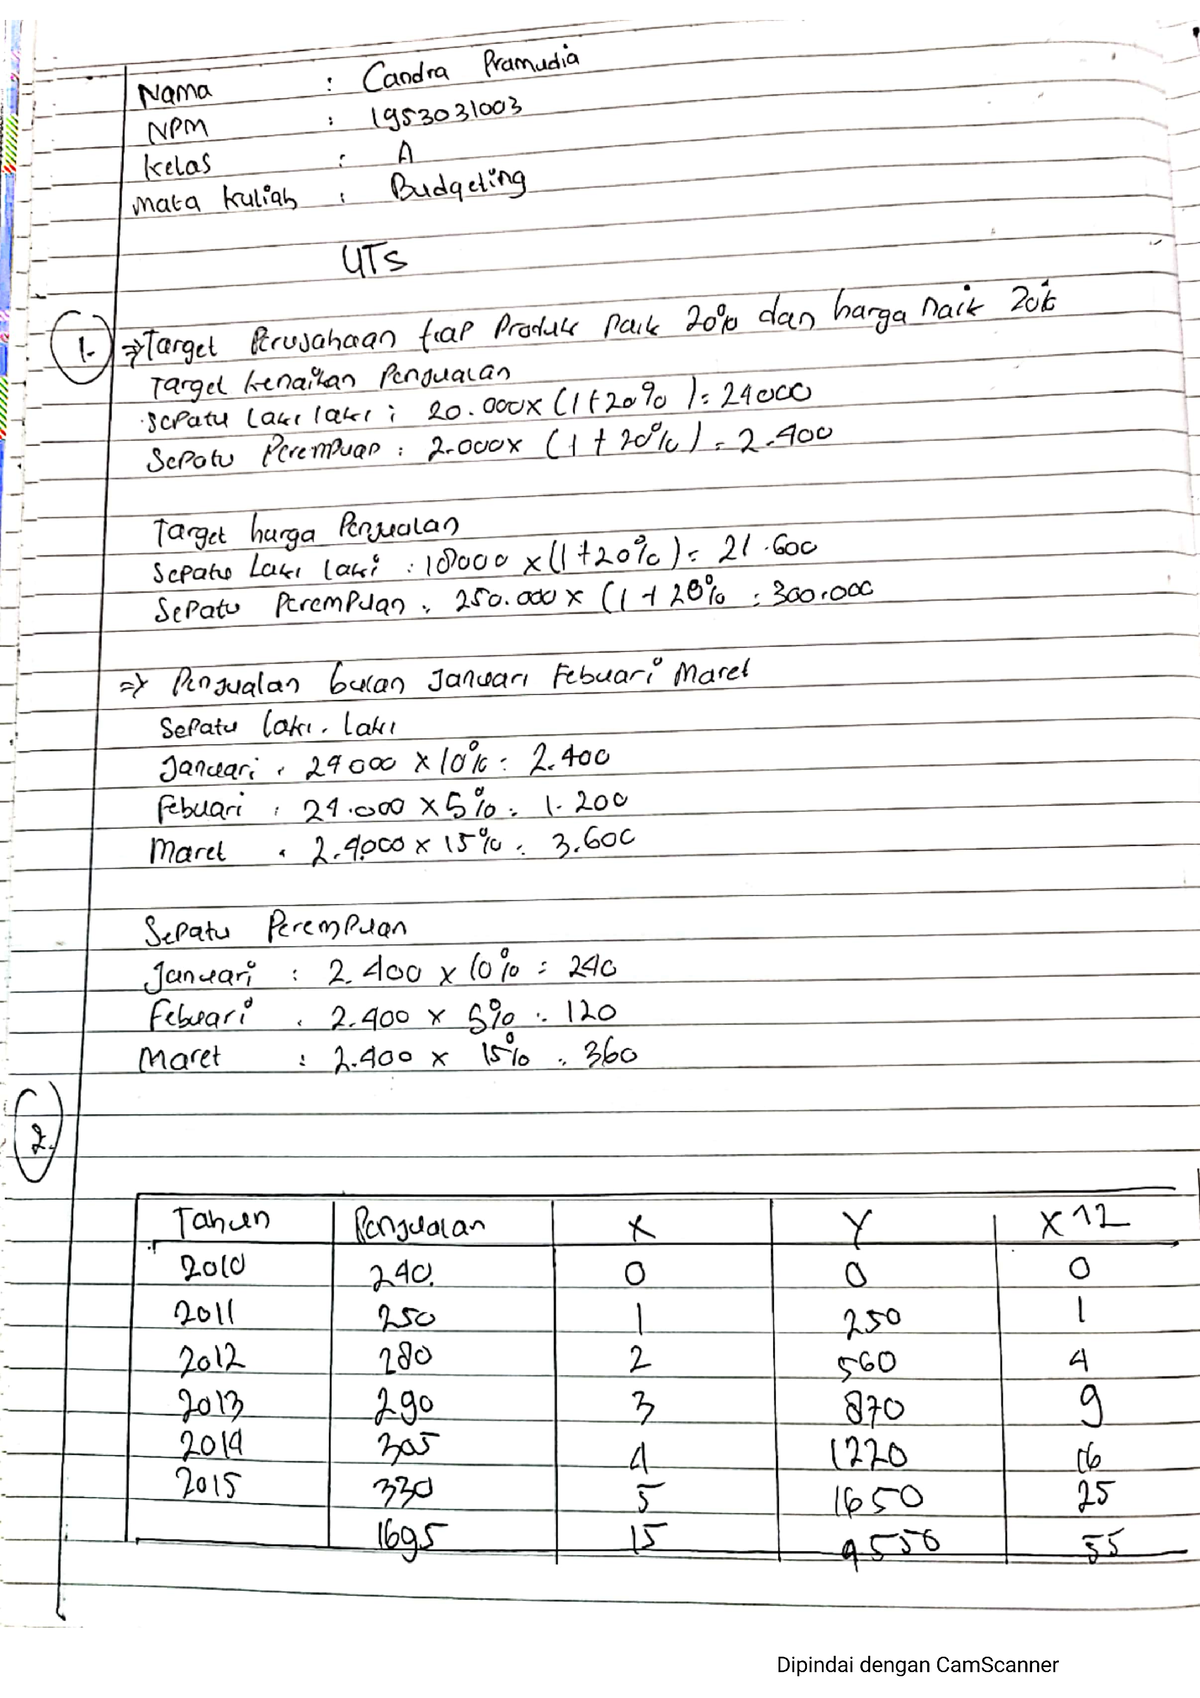 Nama : Candra Pramudia
NPM : 1953031003
Kelas : A
Mata kuliah : Budgeting
UTS
1. => Target Perusahaan tiap Produk naik 20% dan harga naik 20%
Target kenaikan Penjualan
Sepatu laki laki : 20.000 x (1+20%) = 24000
Sepatu Perempuan : 2.000 x (1 + 20%) = 2.400
Target harga Penjualan
Sepatu Laki laki : 18000 x (1+20%) = 21.600
Sepatu Perempuan : 250.000 x (1 + 20% = 300.000
=> Penjualan bulan Januari Febuari Maret
Sepatu laki-laki
Januari : 24000 x 10% = 2.400
Febuari : 24.000 x 5% = 1.200
Maret : 2.4000 x 15% = 3.600
Sepatu Perempuan
Januari : 2.400 x 10% = 240
Febuari : 2.400 x 5% = 120
Maret : 2.400 x 15% = 360
2.
Tahun Penjualan X Y X^2
2010 240. 0 0 0
2011 250 1 250 1
2012 280 2 560 4
2013 290 3 870 9
2014 305 4 1220 16
2015 330 5 1650 25
1695 15 4550 55
Dipindai dengan CamScanner